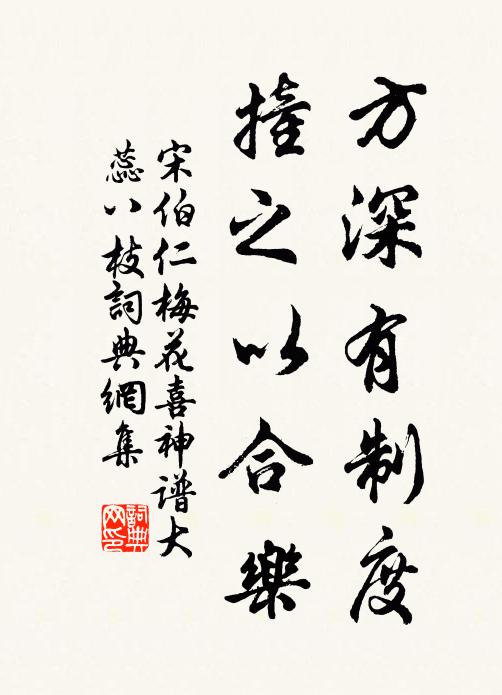 方深有制度
撞之以合樂
宋伯仁梅花喜神譜大
蕊八枝詞典網集
詞典网印